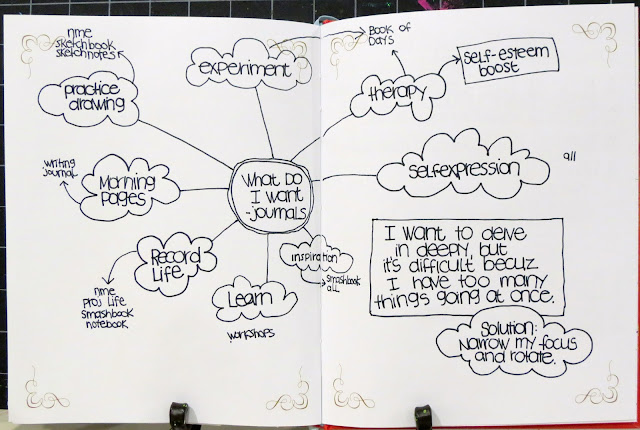 nme
sketchbook
sketchnotes
practice
drawing
experiment
Book of
Days
therapy
Self-esteem
boost
writing
journal
Morning
Pages
What Do
I Want
-journals
Selfexpression
all
Record
Life
nme
Proj Life
smashbook
notebook
Learn
workshops
inspiration
smashbook
all
I want to delve
in deeply, but
it's difficult becuz
I have too many
things going at once.
Solution:
Narrow my focus
and rotate.